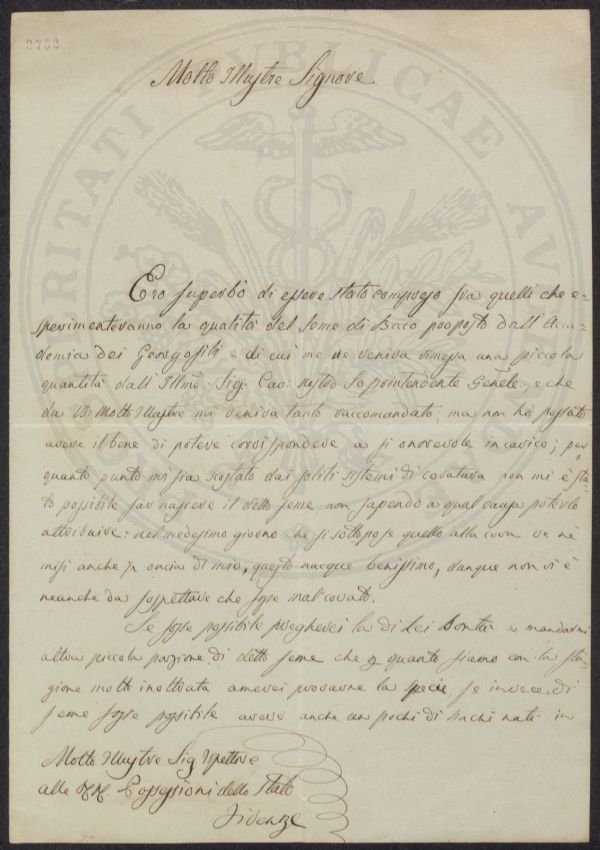 2752
Molto Illustre Signore
Ero superbo di essere stato compreso fra quelli che e-
sperimenteranno la qualità del Seme di Baco proposto dall'Acca-
demia dei Georgofili e di cui me ne veniva rimessa una piccola
quantità dall'Illmo: Sig: Cav: nostro Soprintendente Genẽle, e che
da VS: Molto Illustre mi veniva tanto raccomandato; ma non hò possuto
avere il bene di potere corrispondere a sì onorevole incarico; per
quanto punto mi sia scostato dai soliti sistemi di covatura non mi è sta-
to possibile far nascere il detto seme non sapendo a qual causa poterlo
attribuire: nel medesimo giorno che si sottopose quello alla cova ve nè
misi anche oncia di mio, questo nacque benissimo, dunque non vi è
neanche da sospettare che fosse mal covato.
Se fosse possibile pregherei la di Lei bontà a mandarmi
altra piccola porzione di detto seme che quanto siamo con la sta-
gione molto inoltrata amerei provarne la specie, se invece di
seme fosse possibile avere anche un pochi di Bachi nati in
Molto Illustre Sig. Ispettore
alle RR. Possessioni dello Stato
Firenze
PUBLICAE